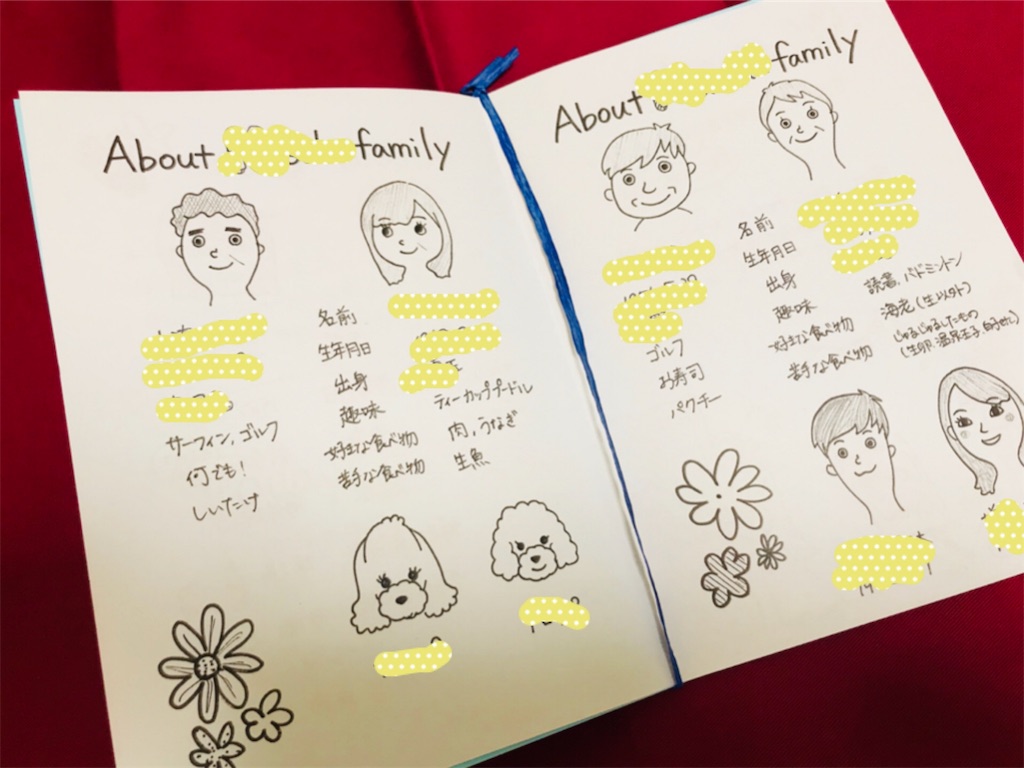 About family
名前
生年月日
出身
趣味
好きな食べ物
苦手な食べ物
サーフィン,ゴルフ
何でも!
しいたけ
ティーカッププードル
肉,うなぎ
生魚
About family
名前
生年月日
出身
趣味
好きな食べ物
苦手な食べ物
ゴルフ
お寿司
パクチー
読書,バドミントン
海老(生以外)
じゅるじゅるしたもの